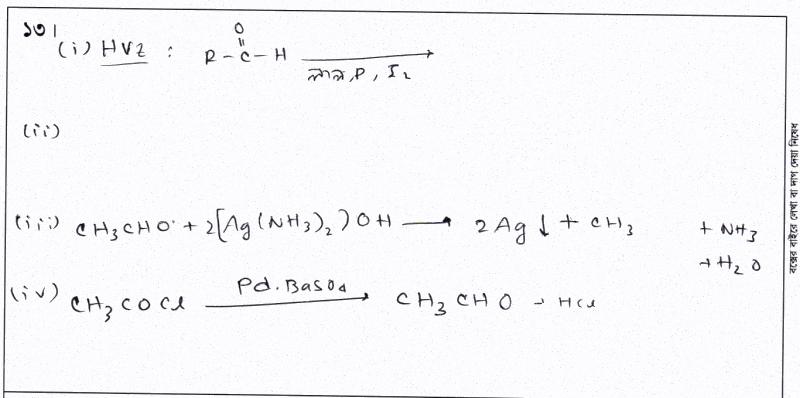 ১৩।
(i) HVZ : R-C-H
O
লাল, P, I₂
(ii)
(iii) CH₃CHO + 2[Ag(NH₃)₂)OH → 2Ag↓ + CH₃ + NH₃
+ H₂O
(iv) CH₃COCl Pd.BaSO₄ → CH₃CHO + HCl
বক্সের বাইরে লেখা বা দাগ দেয়া নিষেধ